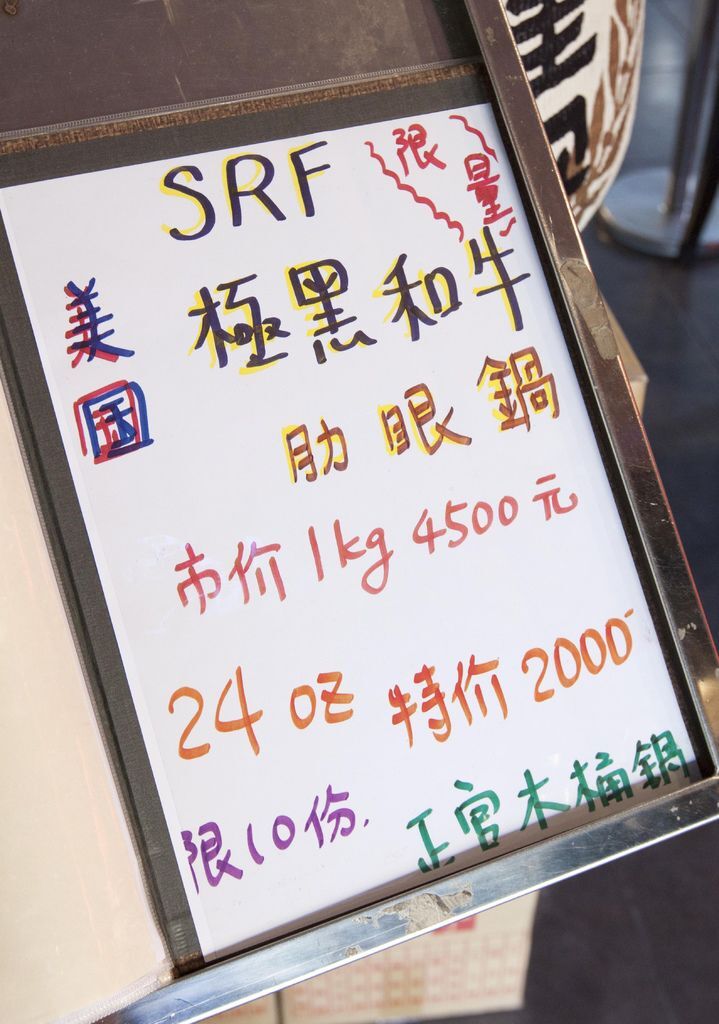 SRF
限量
美国
極黑和牛
肋眼鍋
市价 1kg 4500元
24 oz 特价 2000
限10份.
正宮木桶鍋